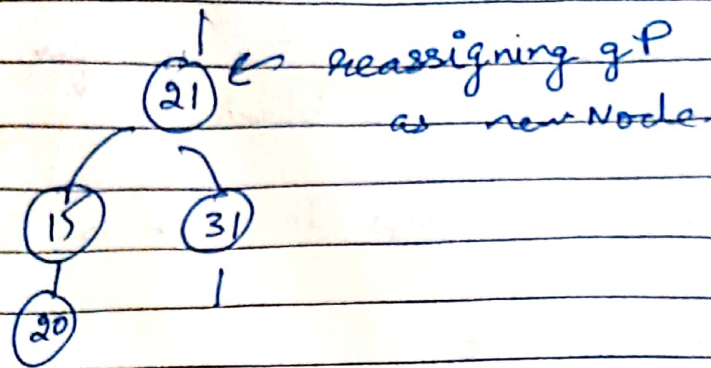 21 reassigning gP
as new Node
15 31
20